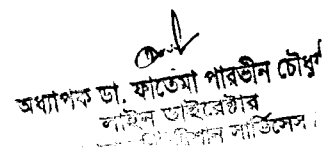 অধ্যাপক ডা. ফাতেমা পারভীন চৌধুরী
লাইন ডাইরেক্টর
সার্ভিসেস